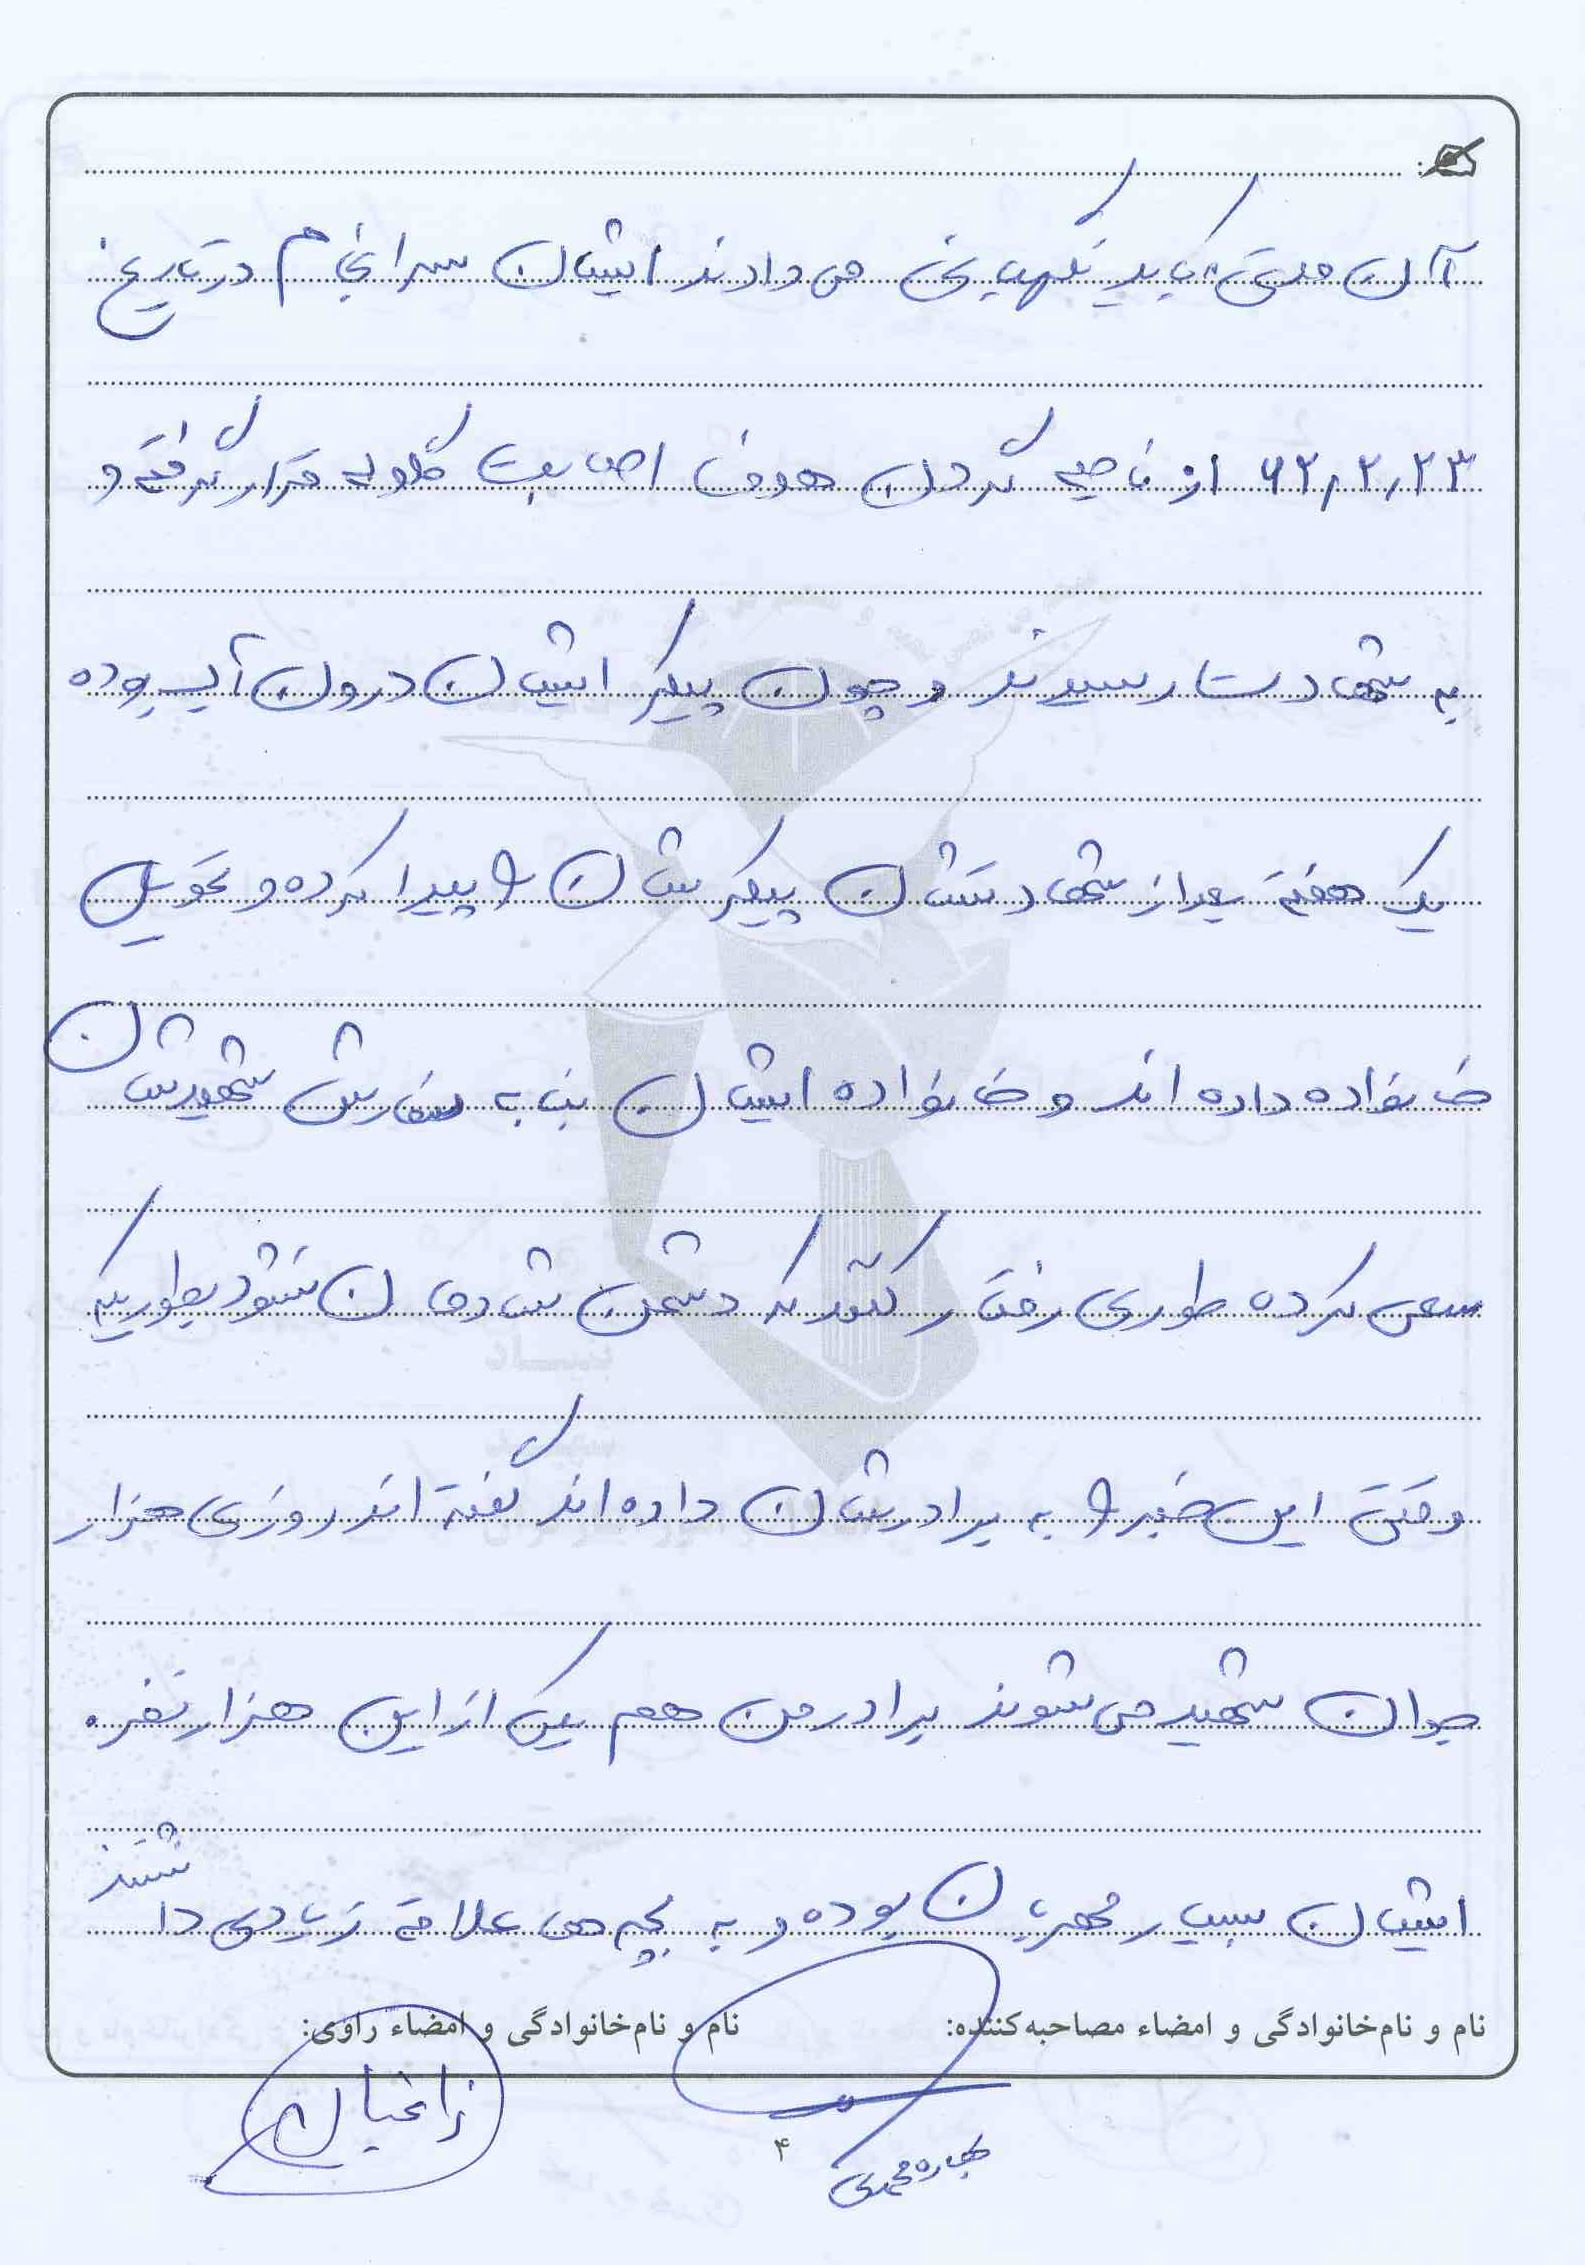 آن مدتی باید نگهبانی می دادند ایشان سرانجام در تاریخ
۶۲٫۲٫۲۳ از ناحیه گردن هدف اصابت گلوله قرار گرفته و
به شهادت رسیدند و چون پیکر ایشان درون آب بوده
یک هفته بعد از شهادتشان پیکرشان را پیدا کرده و تحویل
خانواده داده اند و خانواده ایشان بنا به سفارش شهیدشان
سعی کرده طوری رفتار کنند که دشمن شادمان نشود بطوریکه
وقتی این خبر را به برادرشان داده اند گفته اند روزی هزار
جوان شهید می شوند برادر من هم یکی از این هزار نفر.
ایشان بسیار مهربان بوده و به بچه ها علاقه زیادی داشتند
نام و نام‌خانوادگی و امضاء مصاحبه‌کننده: نام و نام‌خانوادگی و امضاء راوی:
زاغیان
بهاره محمدی
۴